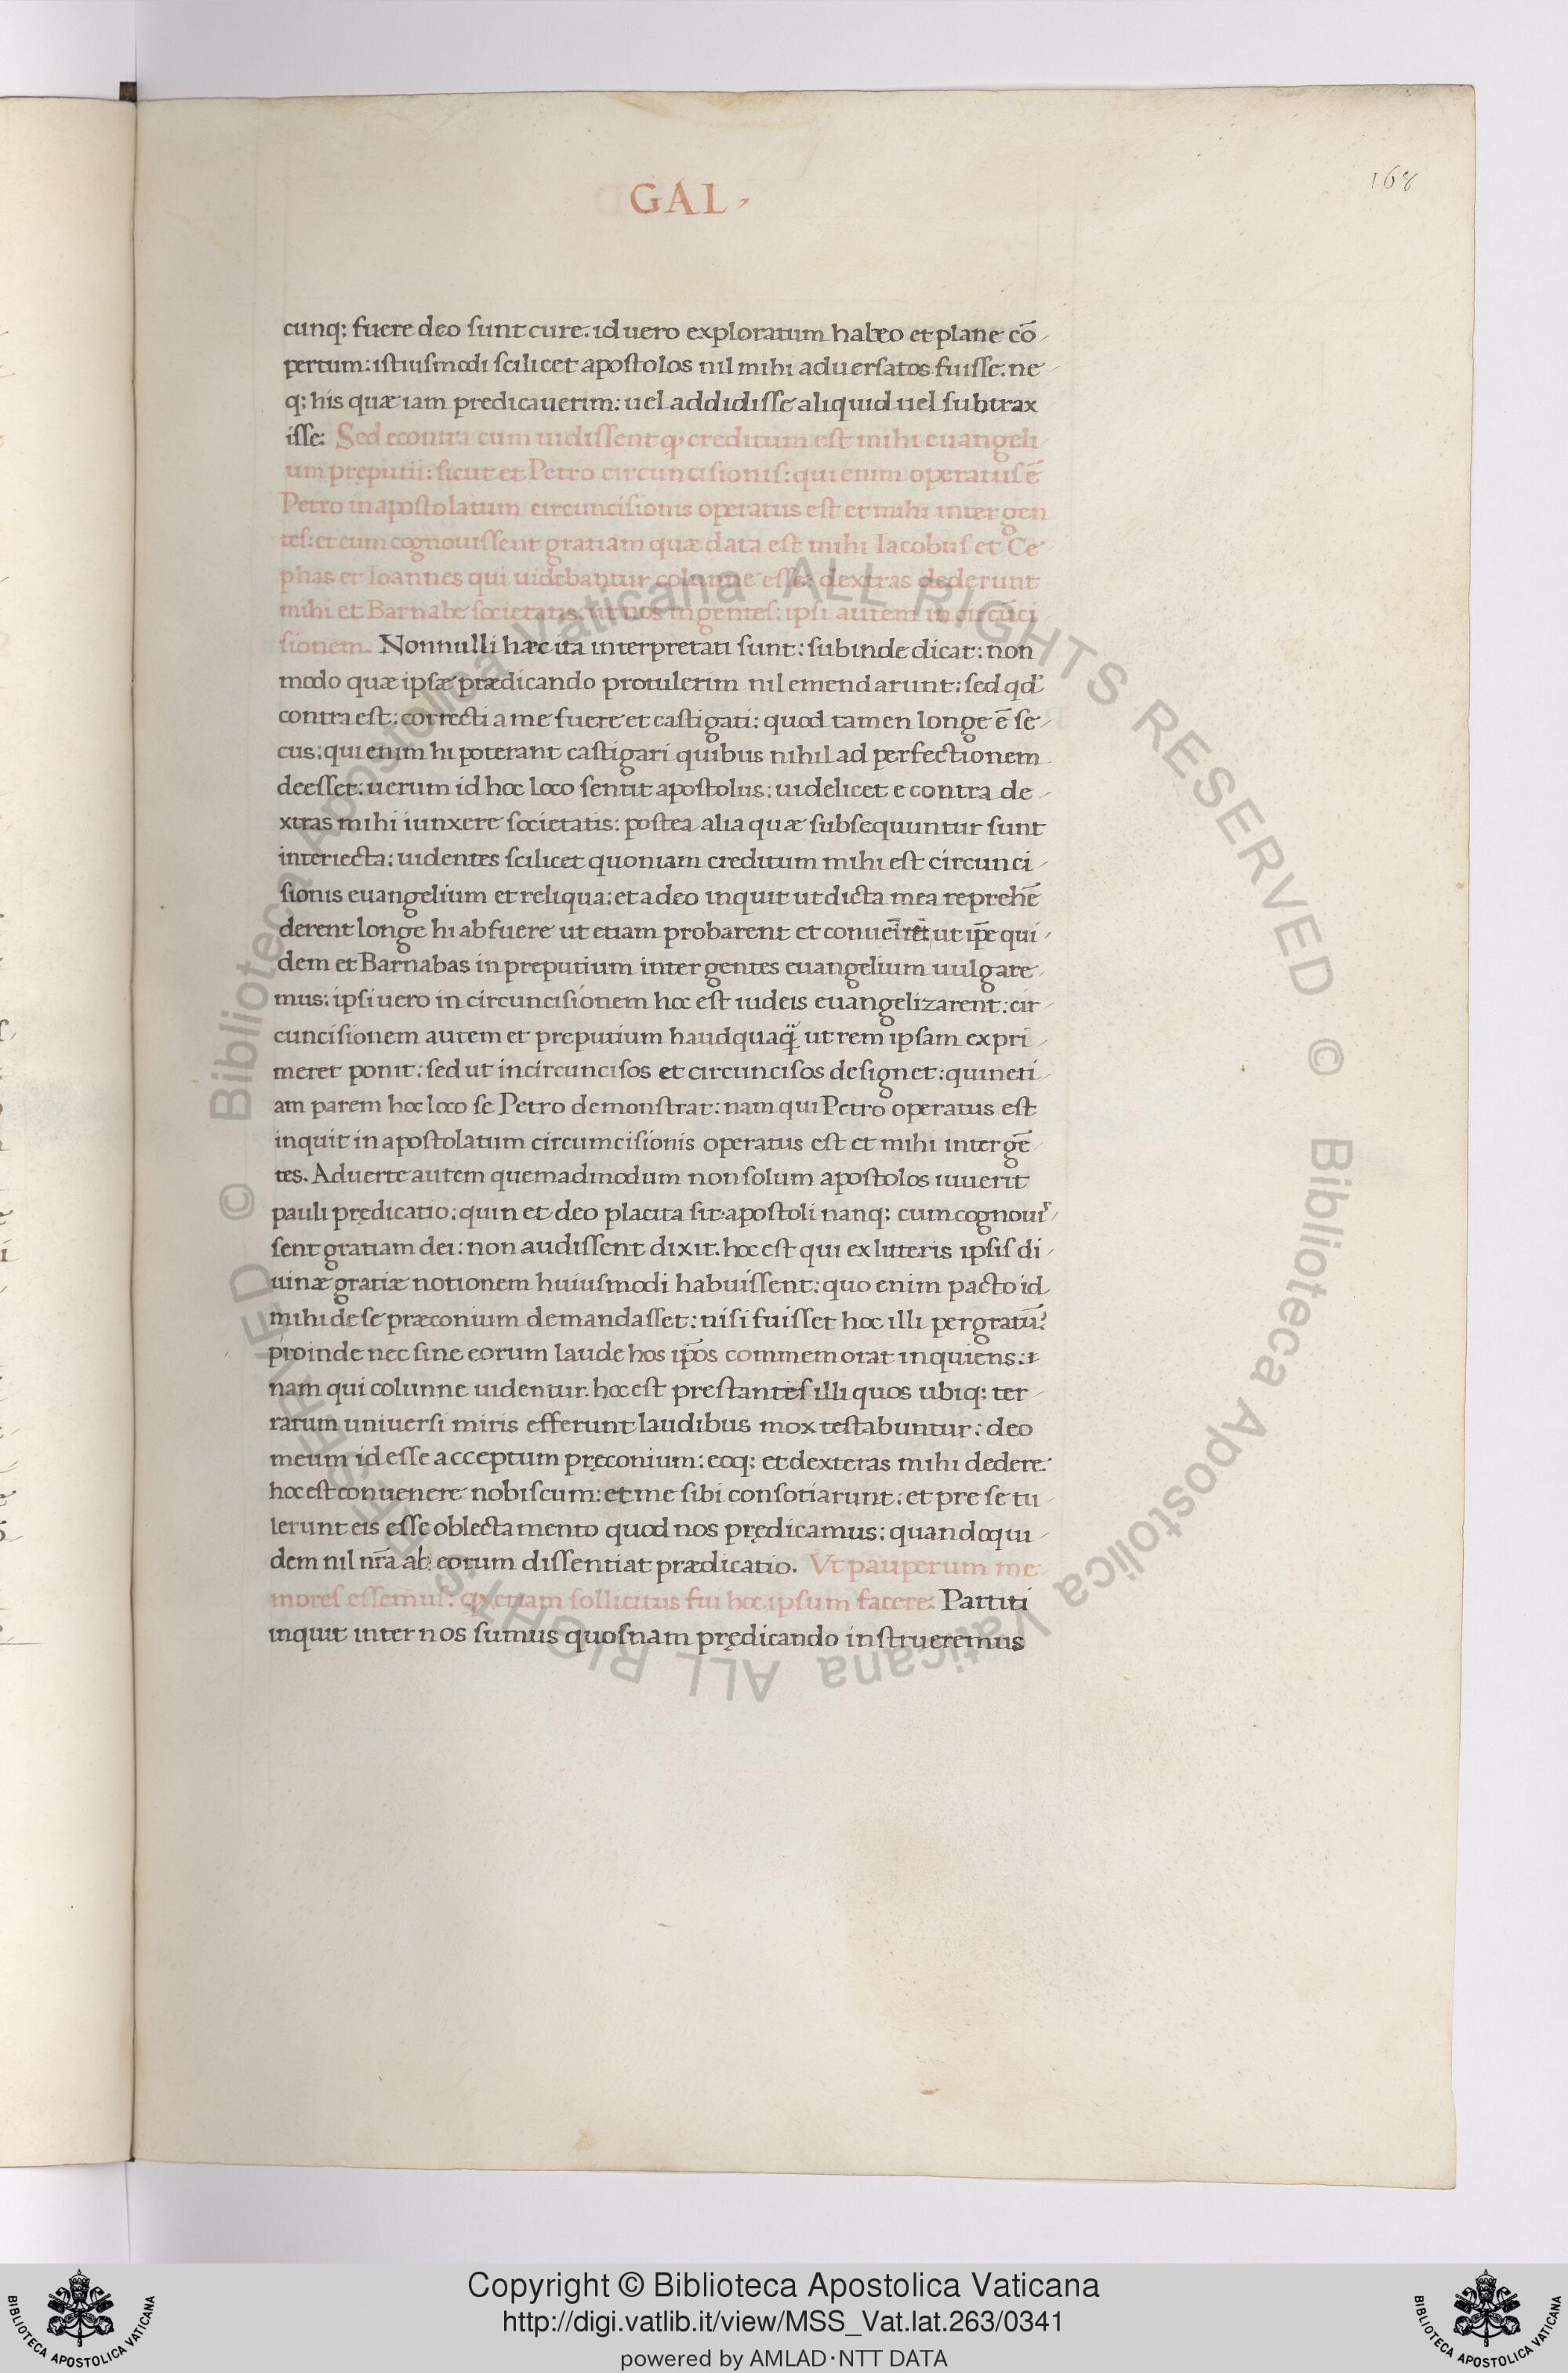 GAL
168
cunq; fuere deo sunt cure. id uero exploratum habeo et plane cō
pertum: istiusmodi scilicet apostolos nil mihi aduersatos fuisse. ne
q; his quæ iam predicauerim: uel addidisse aliquid uel subtrax
isse: Sed econtra cum uidissent ꝙ creditum est mihi euangeli
um pręputii: sicut et Petro circuncisionis: qui enim operatus ē
Petro in apostolatum circuncisionis operatus est et mihi inter gen
tes: et cum cognouissent gratiam quæ data est mihi Iacobus et Ce
phas et Ioannes qui uidebantur colunne esse: dextras dederunt
mihi et Barnabe societatis, ut nos in gentes: ipsi autem in circūci
sionem. Nonnulli hæc ita interpretati sunt: subinde dicat: non
modo quæ ipsæ prædicando protulerim nil emendarunt: sed qd
contra est: correcti a me fuere et castigati: quod tamen longe ē se
cus: qui enim hi poterant castigari quibus nihil ad perfectionem
deesset: uerum id hoc loco sentit apostolus: uidelicet e contra de
xtras mihi iunxere societatis: postea alia quæ subsequuntur sunt
interiecta: uidentes scilicet quoniam creditum mihi est circunci
sionis euangelium et reliqua: et adeo inquit ut dicta mea reprehē
derent longe hi abfuere ut etiam probarent et ut ip̄e qui
dem et Barnabas in preputium inter gentes euangelium uulgare
mus: ipsi uero in circuncisionem hoc est iudeis euangelizarent: cir
cuncisionem autem et preputium haudquaq̃ ut rem ipsam expri
meret ponit: sed ut incircuncisos et circuncisos designet: quineti
am parem hoc loco se Petro demonstrat: nam qui Petro operatus est
inquit in apostolatum circumcisionis operatus est et mihi inter gē
tes. Aduerte autem quemadmodum non solum apostolos iuuerit
pauli prędicatio: quin et deo placita sit. apostoli nanq; cum cognouis
sent gratiam dei: non audissent dixit. hoc est qui ex litteris ipsis di
uinæ gratiæ notionem huiusmodi habuissent: quo enim pacto id
mihi de se præconium demandasset: nisi fuisset hoc illi pergratū?
proinde nec sine eorum laude hos ip̄os commemorat inquiens:
nam qui colunne uidentur. hoc est prestantes illi quos ubiq; ter
rarum uniuersi miris efferunt laudibus mox testabuntur: deo
meum id esse acceptum pręconium: eoq; et dexteras mihi dedere.
hoc est conuenere nobiscum: et me sibi consotiarunt: et pre se tu
lerunt eis esse oblectamento quod nos prędicamus: quandoqui
dem nil nr̄a ab eorum dissentiat prædicatio. Vt pauperum me
mores essemus: ꝙ etiam sollicitus fui hoc ipsum facere: Partiti
inquit inter nos sumus quosnam prędicando instrueremus
© Biblioteca Apostolica Vaticana ALL RIGHTS RESERVED
© Biblioteca Apostolica Vaticana ALL RIGHTS RESERVED
BIBLIOTECA APOSTOLICA VATICANA
Copyright © Biblioteca Apostolica Vaticana
http://digi.vatlib.it/view/MSS_Vat.lat.263/0341
powered by AMLAD·NTT DATA
BIBLIOTECA APOSTOLICA VATICANA